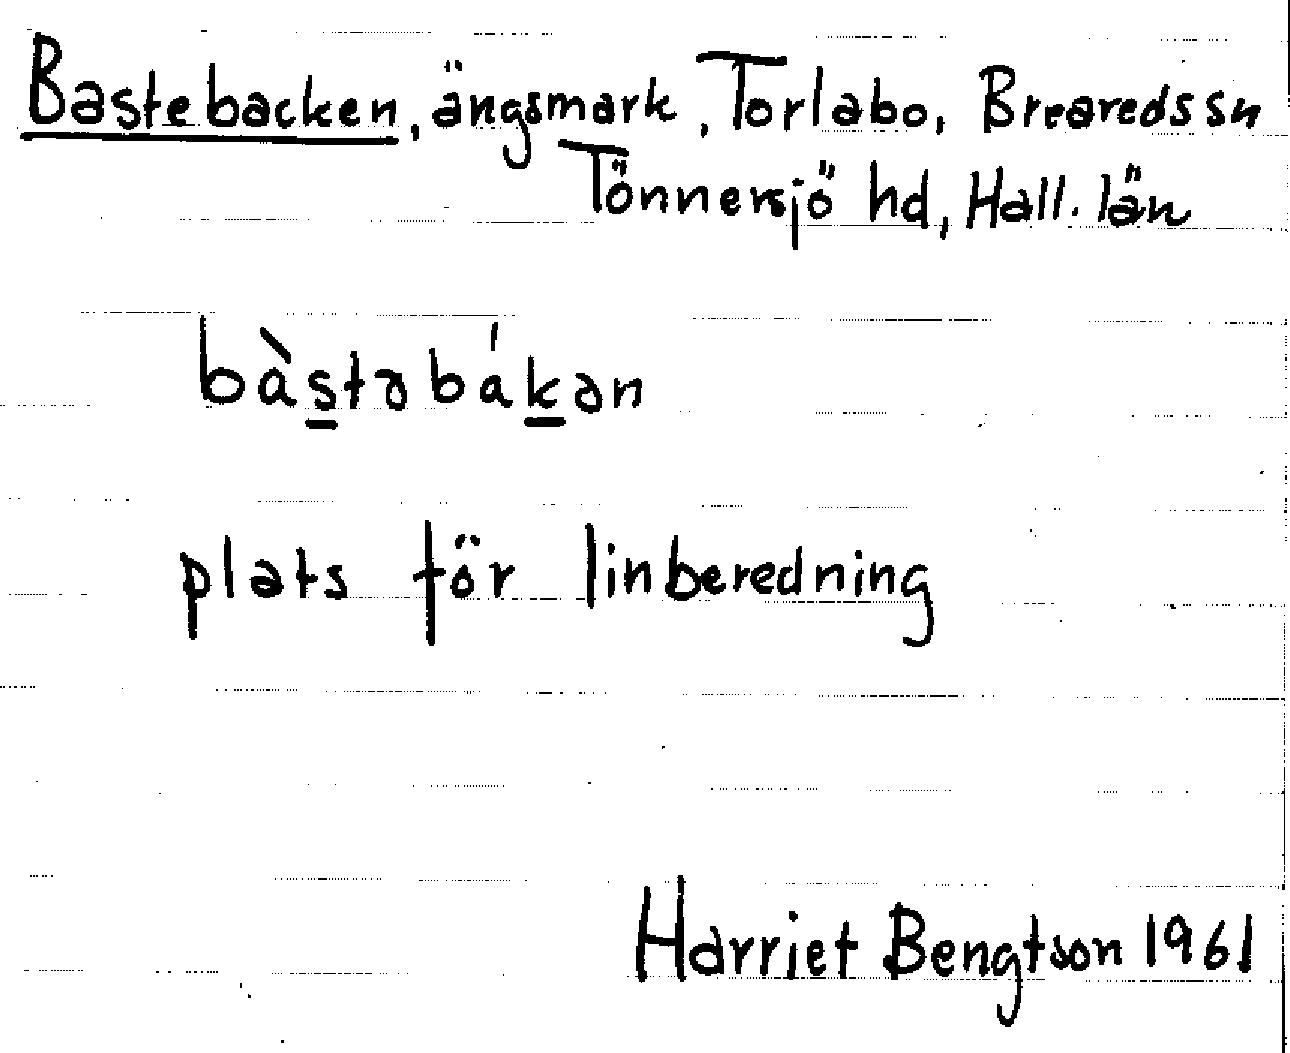 Bastebacken, ängsmark, Torlabo, Breareds sn
Tönnersjö hd, Hall. län
bàstəbákən
plats för linberedning
Harriet Bengtson 1961